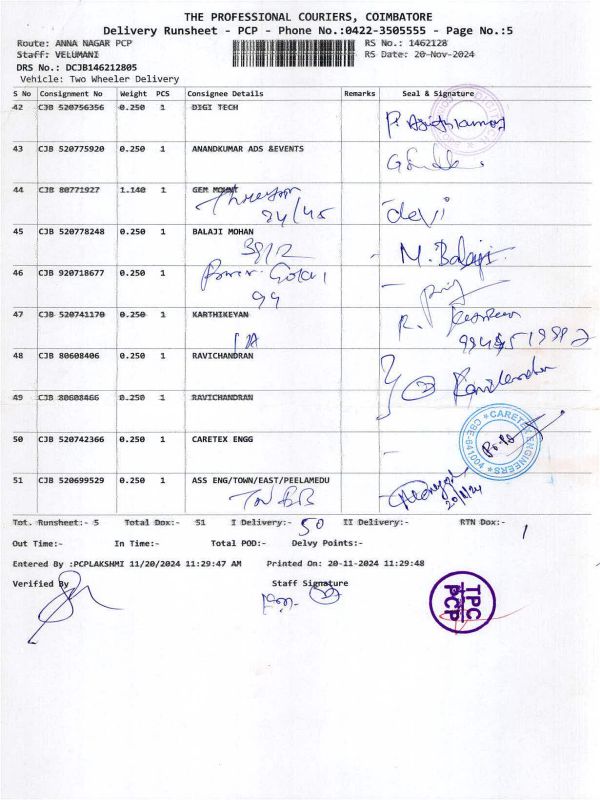 THE PROFESSIONAL COURIERS, COIMBATORE
Delivery Runsheet - PCP - Phone No.:0422-3505555 - Page No.:5
Route: ANNA NAGAR PCP RS No.: 1462128
Staff: VELUMANI RS Date: 20-Nov-2024
DRS No.: DCJB146212805
Vehicle: Two Wheeler Delivery
S No Consignment No Weight PCS Consignee Details Remarks Seal & Signature
42 CJB 520756356 0.250 1 DIGI TECH
43 CJB 520775920 0.250 1 ANANDKUMAR ADS &EVENTS
44 CJB 80771927 1.140 1 GEM MOUNT
24/45 devi
45 CJB 520778248 0.250 1 BALAJI MOHAN
39/2 M. Balaji
46 CJB 920718677 0.250 1
99
47 CJB 520741170 0.250 1 KARTHIKEYAN
48 CJB 80608406 0.250 1 RAVICHANDRAN
49 CJB 80608466 0.250 1 RAVICHANDRAN
50 CJB 520742366 0.250 1 CARETEX ENGG
CARETEX ENGINEERS
CBE-641004
51 CJB 520699529 0.250 1 ASS ENG/TOWN/EAST/PEELAMEDU
20/11/24
Tot. Runsheet:- 5 Total Dox:- 51 I Delivery:- 50 II Delivery:- RTN Dox:- 1
Out Time:- In Time:- Total POD:- Delvy Points:-
Entered By :PCPLAKSHMI 11/20/2024 11:29:47 AM Printed On: 20-11-2024 11:29:48
Verified By Staff Signature
TPC
PCP